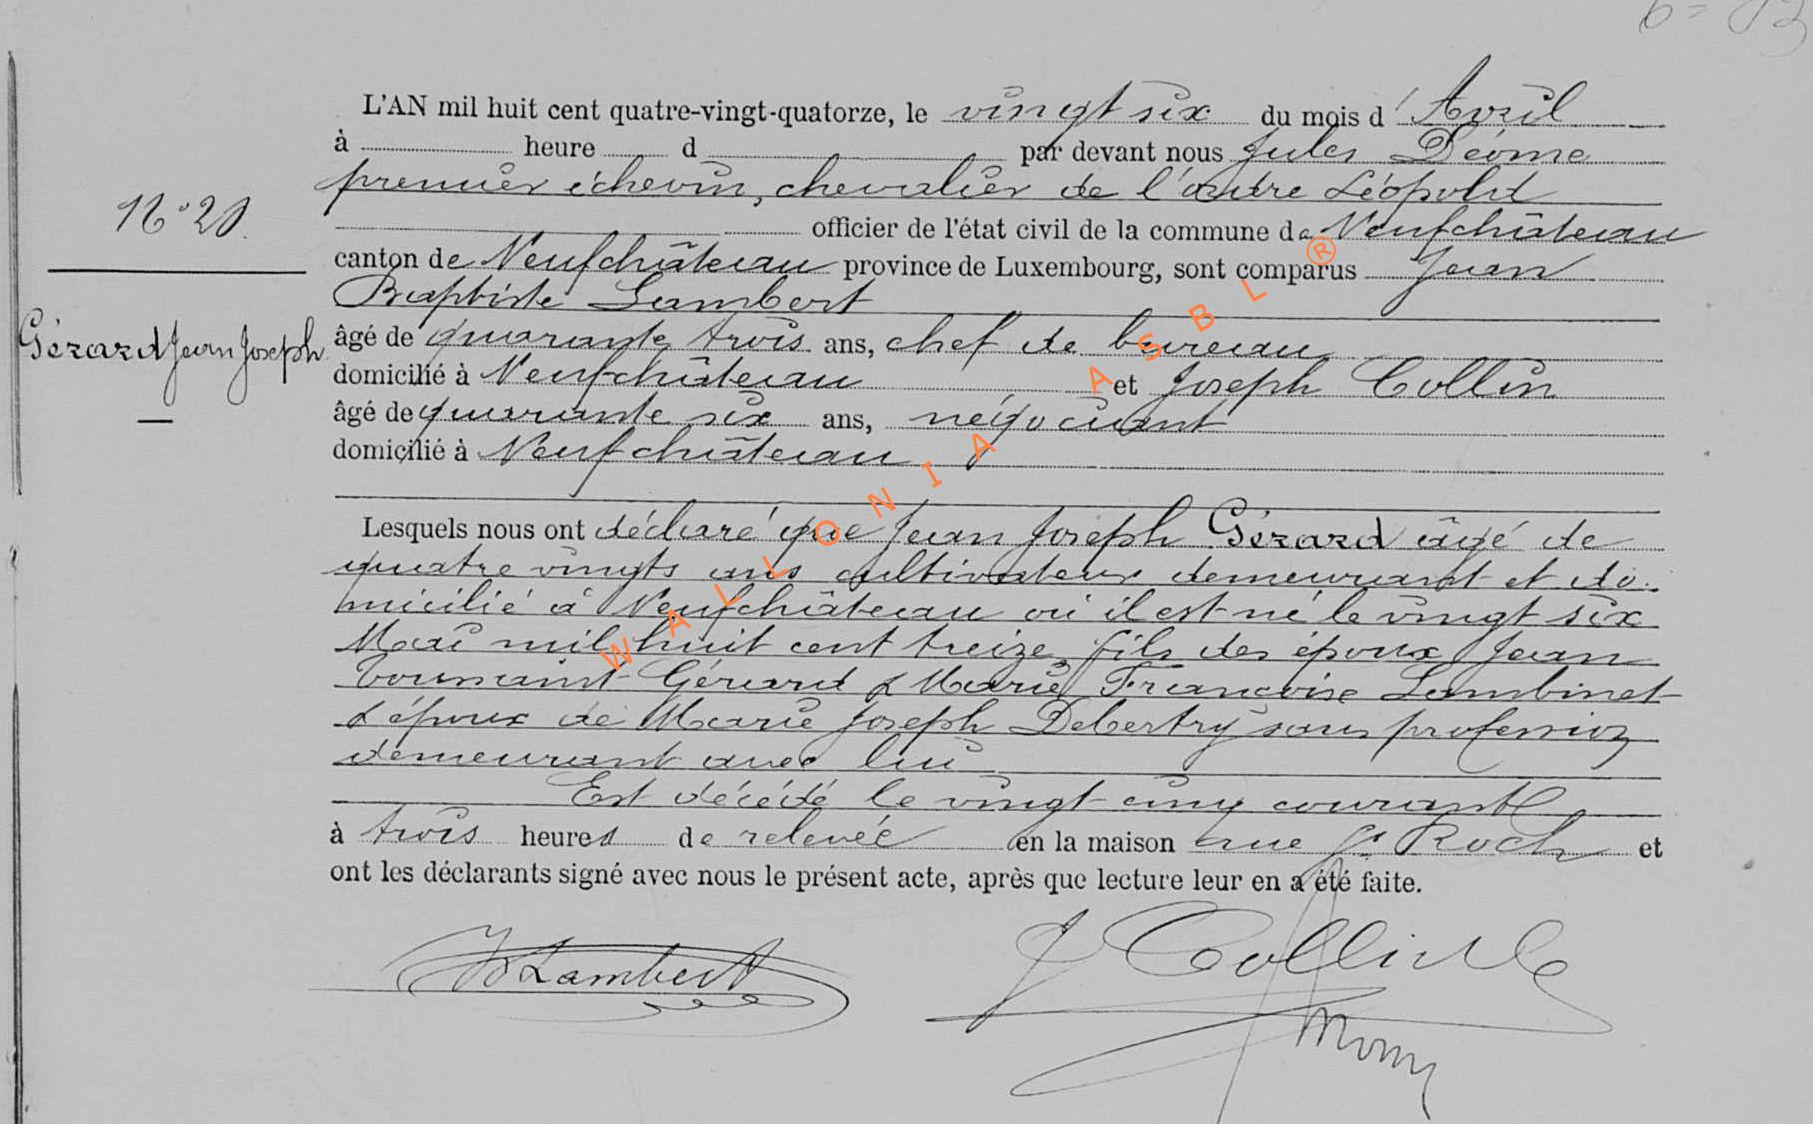 L'AN mil huit cent quatre-vingt-quatorze, le vingt six du mois d'Avril
à heure d par devant nous Jules Déome
premier échevin, chevalier de l'ordre Léopold
officier de l'état civil de la commune de Neufchâteau
canton de Neufchâteau province de Luxembourg, sont comparus Jean
Baptiste Lambert
âgé de quarante trois ans, chef de bureau
domicilié à Neufchâteau et Joseph Collin
âgé de quarante six ans, négociant
domicilié à Neufchâteau
N° 20.
Gérard Jean Joseph
Lesquels nous ont déclaré que Jean Joseph Gérard âgé de
quatre vingts ans cultivateur demeurant et do-
micilié à Neufchâteau où il est né le vingt six
Mai mil huit cent treize, fils des époux Jean
Toussaint Gérard & Marie Françoise Lambinet
& époux de Marie Joseph Debertry sans profession
demeurant avec lui
Est décédé le vingt cinq courant
à trois heures de relevée en la maison rue St Roch et
ont les déclarants signé avec nous le présent acte, après que lecture leur en a été faite.
JBLambert
J Collin
WALLONIA ASBL ®